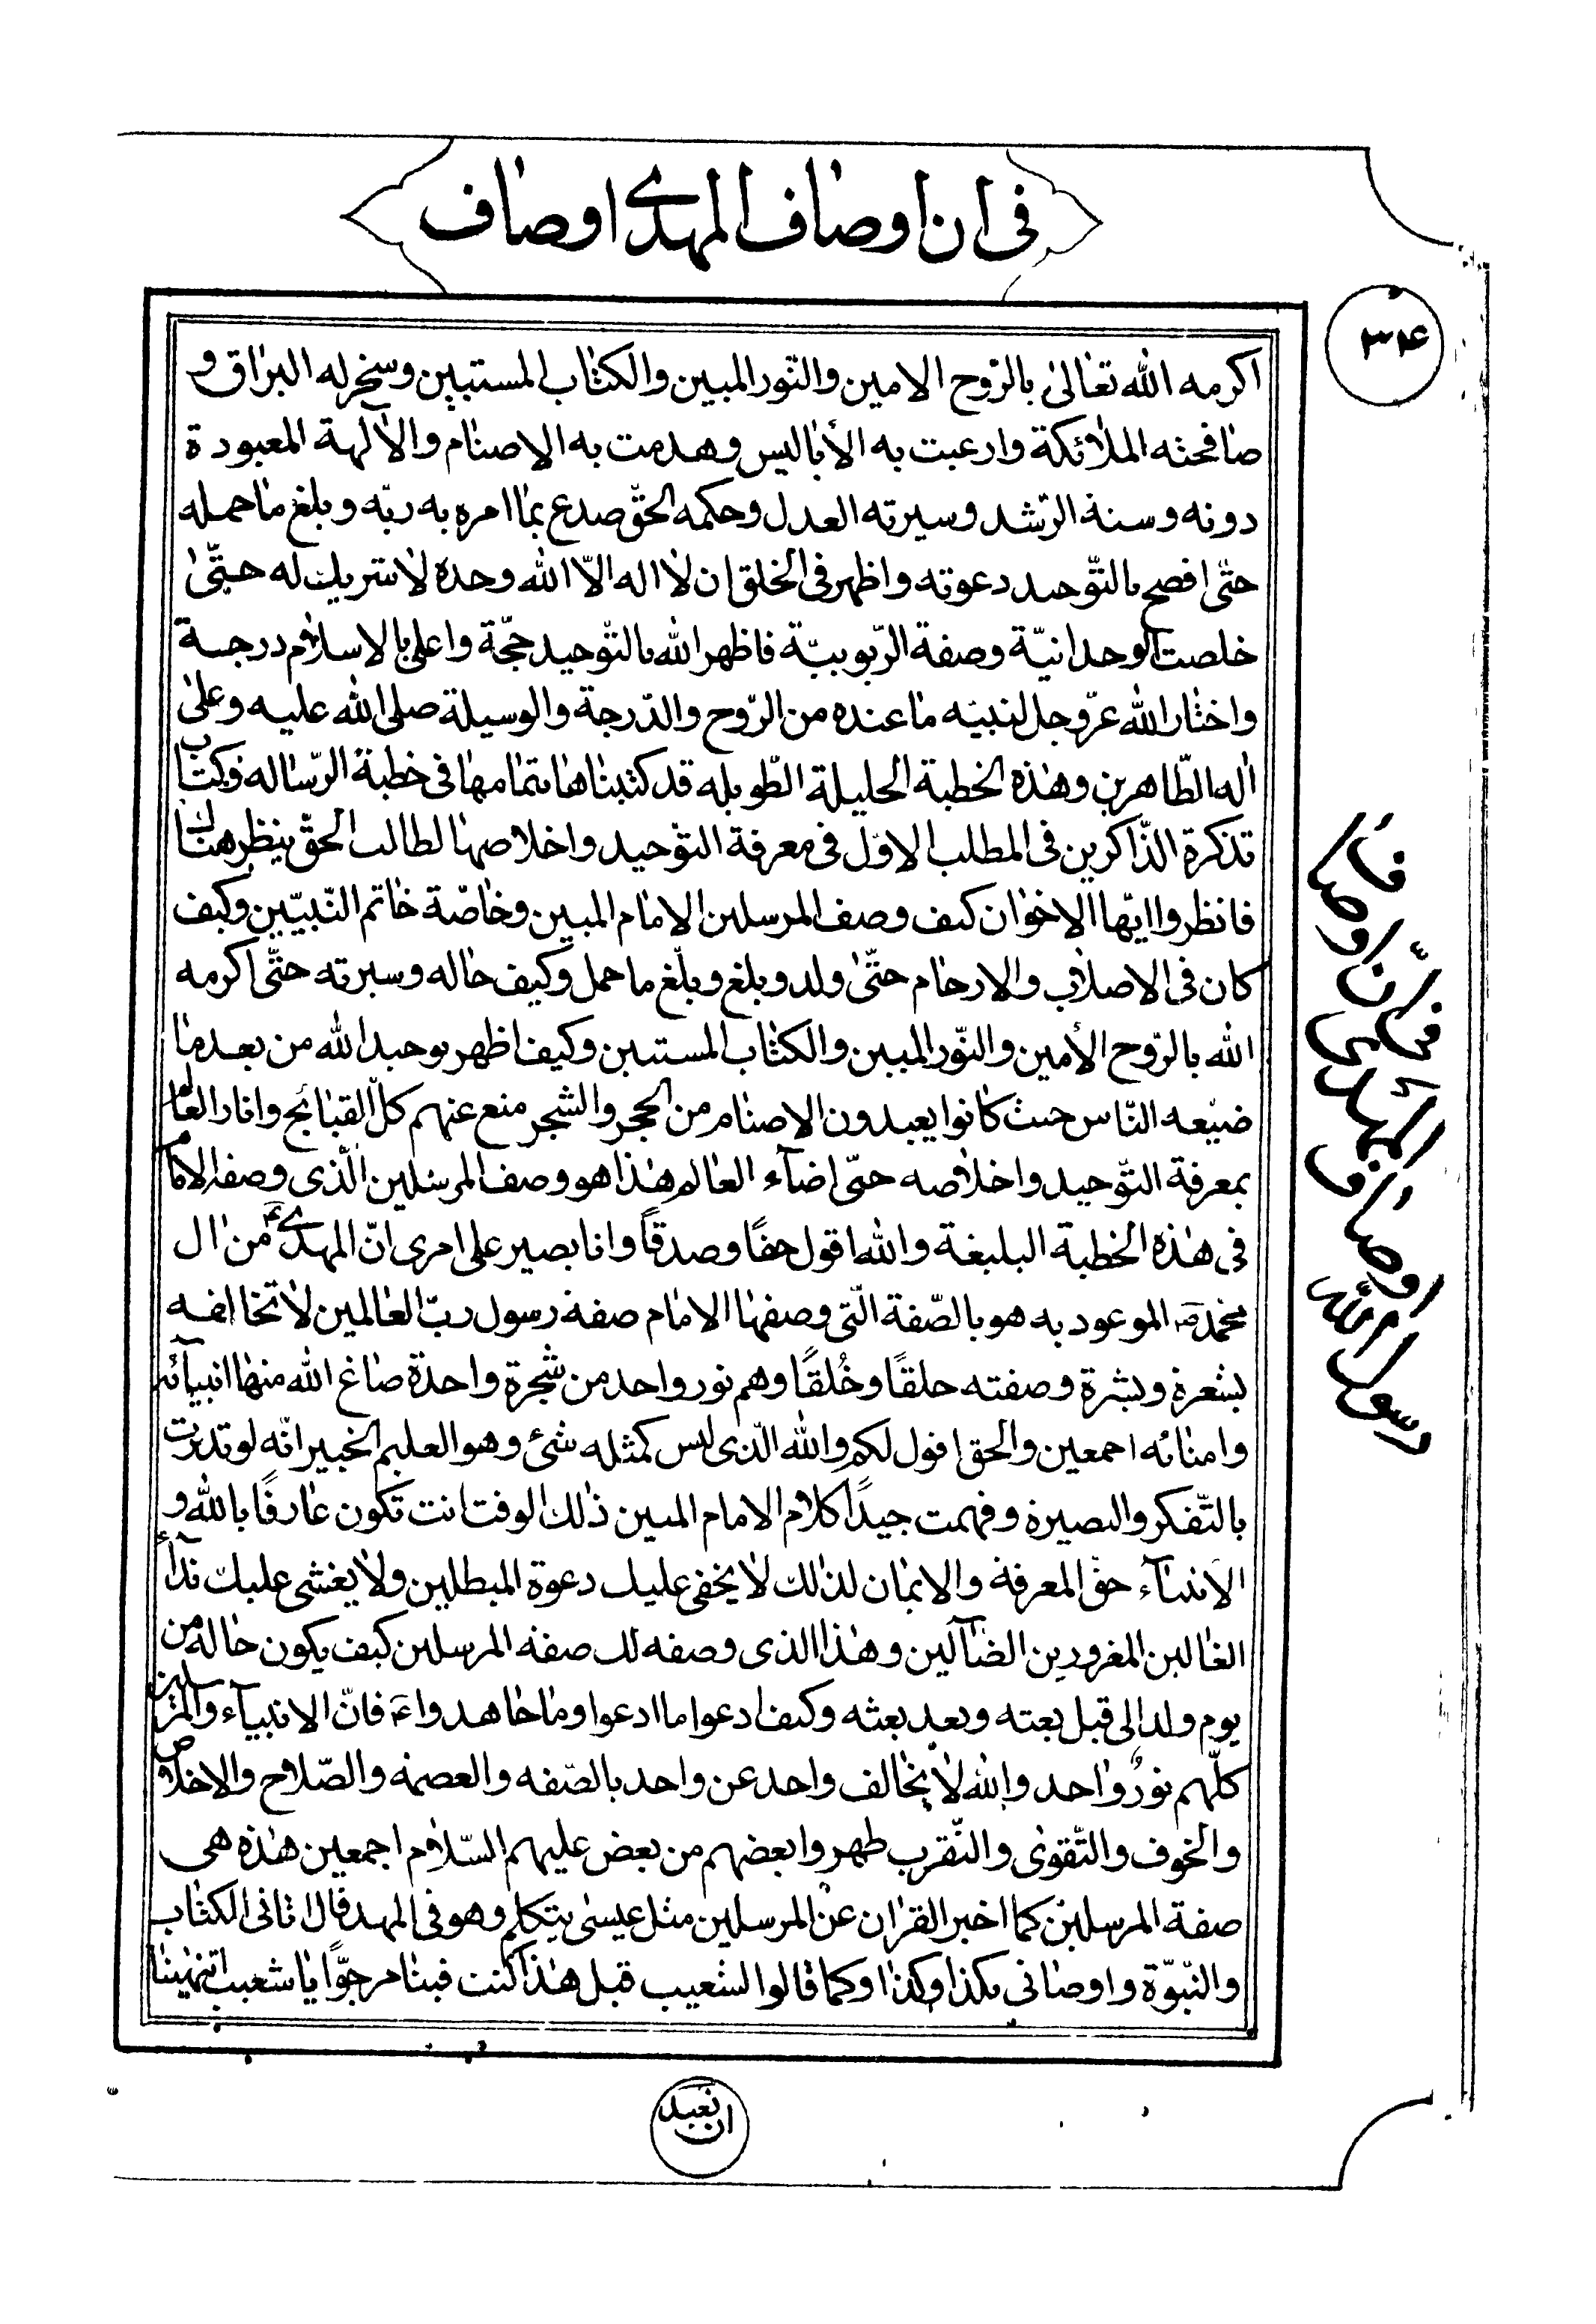 في ان اوصاف المهدي اوصاف
٣٤
اكرمه الله تعالى بالروح الامين والنور المبين والكتاب المستبين وسخر له البراق و
صافحته الملائكة وارعبت به الأباليس وهدمت به الاصنام والآلهة المعبودة
دونه وسنة الرشد وسيرته العدل وحكمه الحق صدع بما امره به ربه وبلغ ما حمله
حتى افصح بالتوحيد دعوته واظهر في الخلق ان لا اله الا الله وحده لا شريك له حتى
خلصت الوحدانية وصفة الربوبية فاظهر الله بالتوحيد حجة واعلى بالاسلام درجة
واختار الله عز وجل لنبيه ما عنده من الروح والدرجة والوسيلة صلى الله عليه وعلى
اله الطاهرين وهذه الخطبة الجليلة الطويله قد كتبناها بتمامها في خطبة الرساله وكتاب
تذكرة الذاكرين في المطلب الاول في معرفة التوحيد واخلاصها لطالب الحق ينظر هناك
فانظروا ايها الاخوان كيف وصف المرسلين الامام المبين وخاصة خاتم النبيين وكيف
كان في الاصلاب والارحام حتى ولد وبلغ وبلّغ ما حمل وكيف حاله وسيرته حتى اكرمه
الله بالروح الأمين والنور المبين والكتاب المستبين وكيف اظهر توحيد الله من بعد ما
ضيعه الناس حيث كانوا يعبدون الاصنام من الحجر والشجر منع عنهم كل القبائح وانار العالم
بمعرفة التوحيد واخلاصه حتى اضآء العالم هذا هو وصف المرسلين الذى وصفه الامام
في هذه الخطبة البليغة والله اقول حقًا وصدقًا وانا بصير على امرى ان المهدي ع من ال
محمد ص الموعود به هو بالصفة التي وصفها الامام صفة رسول رب العالمين لا تخالفه
بشعرة وبشرة وصفته خلقًا وخُلقًا وهم نور واحد من شجرة واحدة صاغ الله منها انبيآئه
وامنائه اجمعين والحق اقول لكم والله الذى ليس كمثله شئ وهو العليم الخبير انه لو تدبرت
بالتفكر والبصيرة وفهمت جيدًا كلام الامام المبين ذلك الوقت انت تكون عارفًا بالله و
الانبيآء حق المعرفة والايمان لذلك لا يخفى عليك دعوة المبطلين ولا يغشى عليك ندآء
الغالين المغرورين الضآلين وهذا الذى وصفه لك صفة المرسلين كيف يكون حاله من
يوم ولد الى قبل بعثه وبعد بعثه وكيف ادعوا ما ادعوا وما جاهدوا ع فان الانبيآء والمرسلين
كلهم نورٌ واحد والله لا يخالف واحد عن واحد بالصفه والعصمة والصلاح والاخلاص
والخوف والتقوى والتقرب طهروا بعضهم من بعض عليهم السلام اجمعين هذه هى
صفة المرسلين كما اخبر القران عن المرسلين مثل عيسى يتكلم وهو في المهد قال اتانى الكتاب
والنبوة واوصانى بكذا وكذا وكما قالوا لشعيب قبل هذا كنت فينا مرجوًا يا شعيب اتنهينا
ان نعبد
في ان اوصاف
المهدي
اوصاف
رسول الله